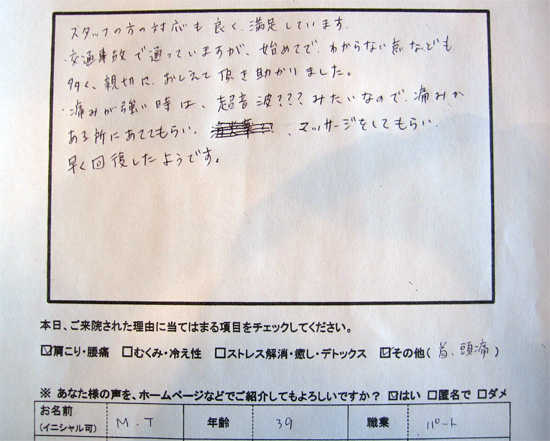 スタッフの方の対応も良く、満足しています。
・交通事故で通っていますが、始めてで、わからない点なども
多く、親切に、おしえて頂き助かりました。
・痛みが強い時は、超音波???みたいなので、痛みが
ある所にあててもらい、マッサージをしてもらい
早く回復したようです。
本日、ご来院された理由に当てはまる項目をチェックしてください。
☑肩こり・腰痛 □むくみ・冷え性 □ストレス解消・癒し・デトックス ☑その他(首、頭痛)
※ あなた様の声を、ホームページなどでご紹介してもよろしいですか? ☑はい □匿名で □ダメ
お名前 M.T 年齢 39 職業 パート
(イニシャル可)